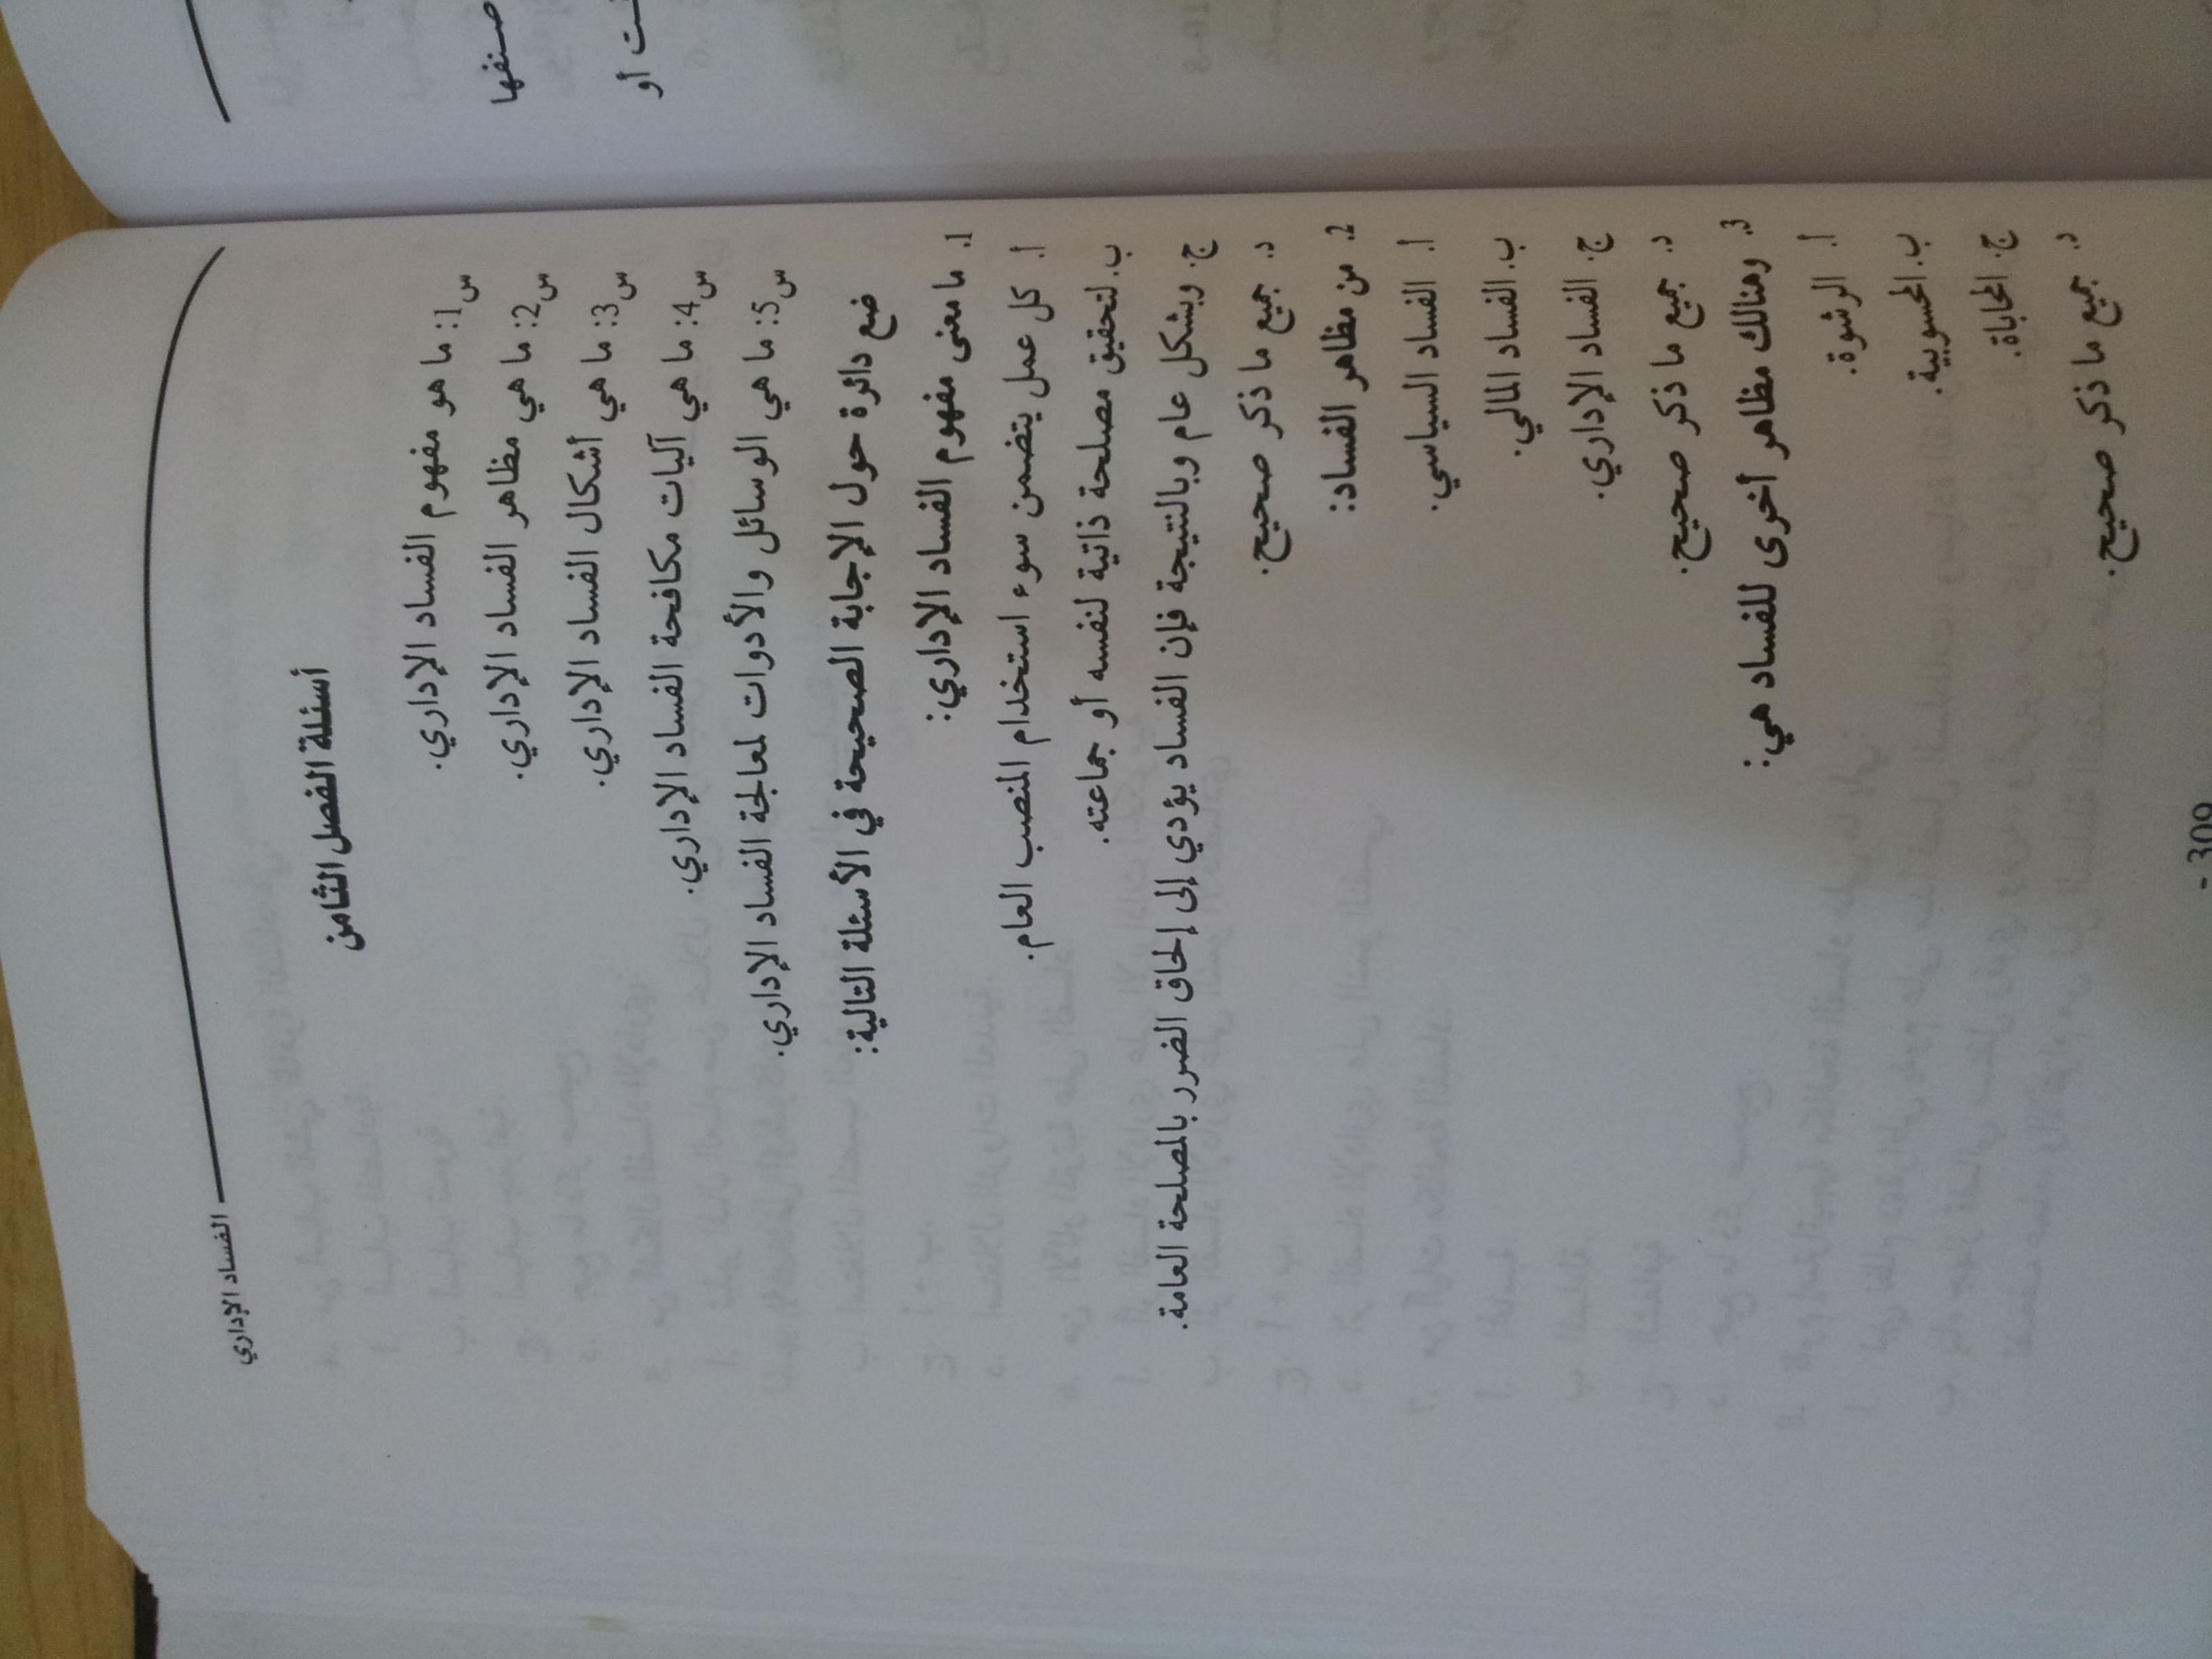 الفساد الإداري
أسئلة الفصل الثامن
س1: ما هو مفهوم الفساد الإداري.
س2: ما هي مظاهر الفساد الإداري.
س3: ما هي أشكال الفساد الإداري.
س4: ما هي آليات مكافحة الفساد الإداري.
س5: ما هي الوسائل والأدوات لمعالجة الفساد الإداري.
ضع دائرة حول الإجابة الصحيحة في الأسئلة التالية:
1. ما معنى مفهوم الفساد الإداري:
أ. كل عمل يتضمن سوء استخدام المنصب العام.
ب. لتحقيق مصلحة ذاتية لنفسه أو جماعته.
ج. وبشكل عام وبالنتيجة فإن الفساد يؤدي إلى إلحاق الضرر بالمصلحة العامة.
د. جميع ما ذكر صحيح.
2. من مظاهر الفساد:
أ. الفساد السياسي.
ب. الفساد المالي.
ج. الفساد الإداري.
د. جميع ما ذكر صحيح.
3. وهنالك مظاهر أخرى للفساد هي:
أ. الرشوة.
ب. المحسوبية.
ج. المحاباة.
د. جميع ما ذكر صحيح.
- 309
صنفها
أو